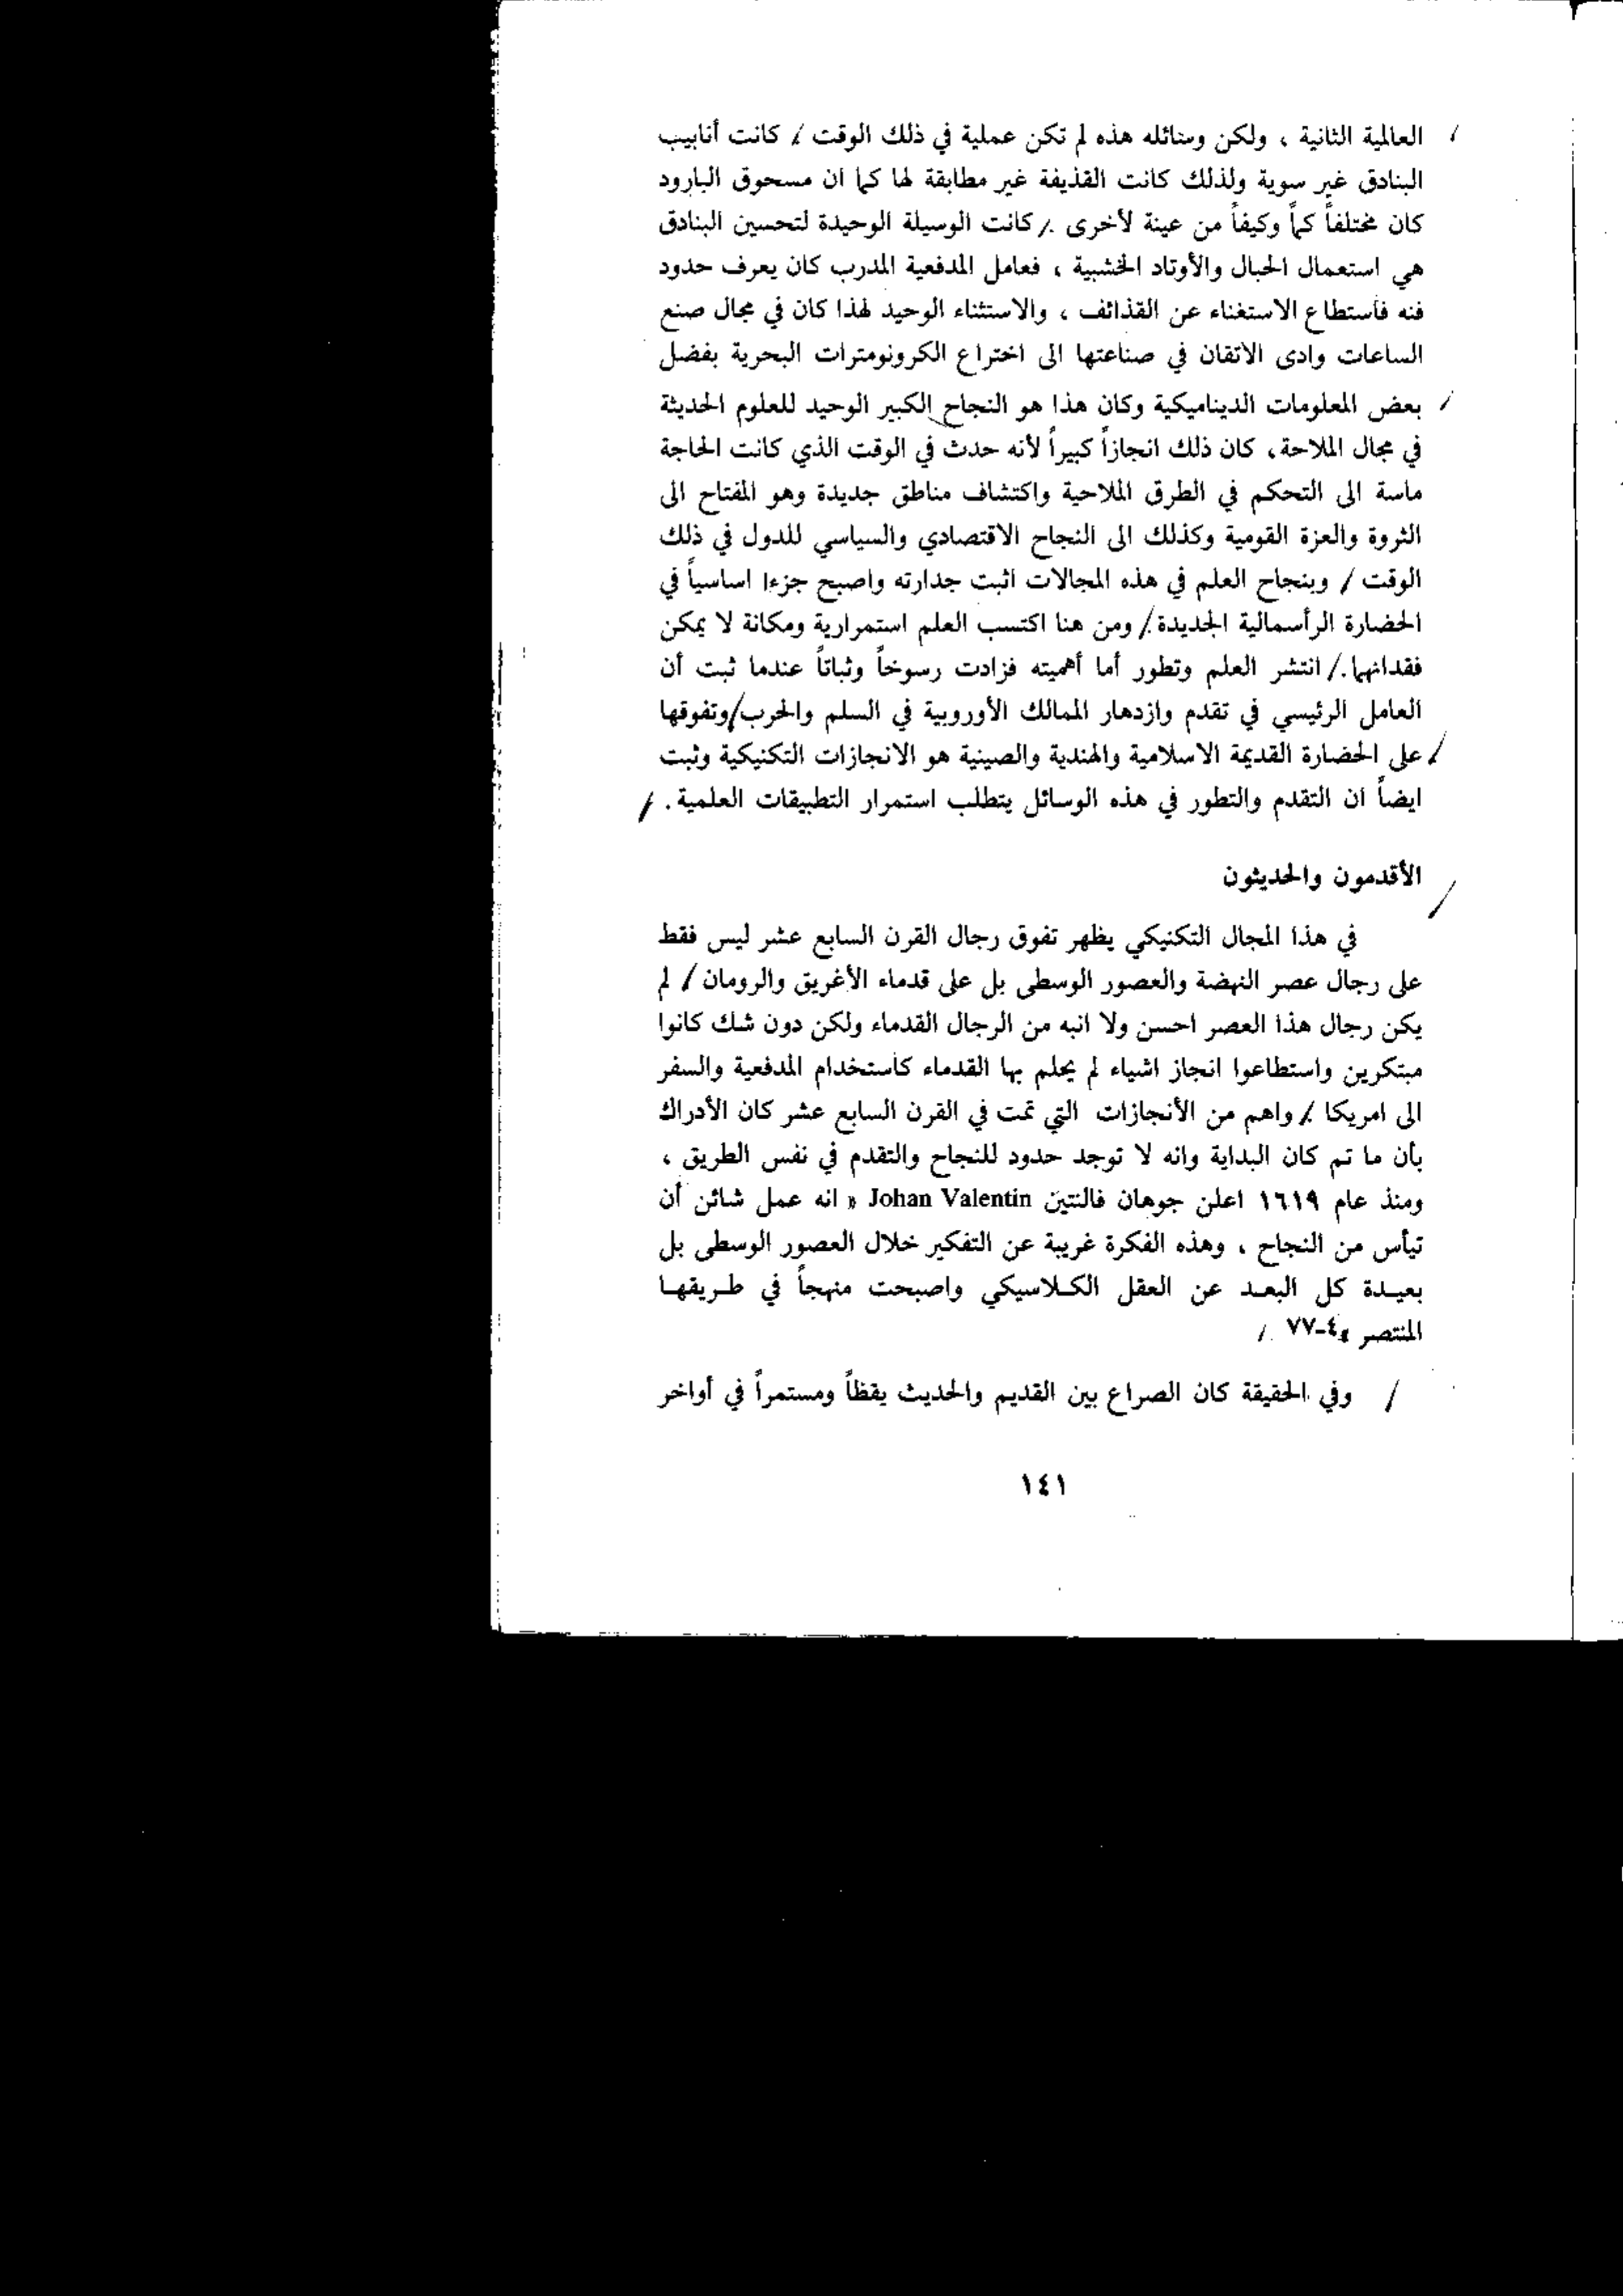 العالمية الثانية ، ولكن وسائله هذه لم تكن عملية في ذلك الوقت / كانت أنابيب
البنادق غير سوية ولذلك كانت القذيفة غير مطابقة لها كما ان مسحوق البارود
كان مختلفاً كماً وكيفاً من عينة لأخرى ./ كانت الوسيلة الوحيدة لتحسين البنادق
هي استعمال الحبال والأوتاد الخشبية ، فعامل المدفعية المدرب كان يعرف حدود
فنه فأستطاع الاستغناء عن القذائف ، والاستثناء الوحيد لهذا كان في مجال صنع
الساعات وادى الاتقان في صناعتها الى اختراع الكرونومترات البحرية بفضل
بعض المعلومات الديناميكية وكان هذا هو النجاح الكبير الوحيد للعلوم الحديثة
في مجال الملاحة ، كان ذلك انجازاً كبيراً لأنه حدث في الوقت الذي كانت الحاجة
ماسة الى التحكم في الطرق الملاحية واكتشاف مناطق جديدة وهو المفتاح الى
الثروة والعزة القومية وكذلك الى النجاح الاقتصادي والسياسي للدول في ذلك
الوقت / وبنجاح العلم في هذه المجالات اثبت جدارته واصبح جزءا اساسياً في
الحضارة الرأسمالية الجديدة ./ ومن هنا اكتسب العلم استمرارية ومكانة لا يمكن
فقدانهما ./ انتشر العلم وتطور أما أهميته فزادت رسوخاً وثباتاً عندما ثبت أن
العامل الرئيسي في تقدم وازدهار الممالك الأوروبية في السلم والحرب/وتفوقها
على الحضارة القديمة الاسلامية والهندية والصينية هو الانجازات التكنيكية وثبت
ايضاً ان التقدم والتطور في هذه الوسائل يتطلب استمرار التطبيقات العلمية . /
الأقدمون والحديثون
في هذا المجال التكنيكي يظهر تفوق رجال القرن السابع عشر ليس فقط
على رجال عصر النهضة والعصور الوسطى بل على قدماء الأغريق والرومان / لم
يكن رجال هذا العصر احسن ولا انبه من الرجال القدماء ولكن دون شك كانوا
مبتكرين واستطاعوا انجاز اشياء لم يحلم بها القدماء كأستخدام المدفعية والسفر
الى امريكا ./ واهم من الأنجازات التي تمت في القرن السابع عشر كان الأدراك
بأن ما تم كان البداية وانه لا توجد حدود للنجاح والتقدم في نفس الطريق ،
ومنذ عام ١٦١٩ اعلن جوهان فالنتين Johan Valentin « انه عمل شائن أن
تيأس من النجاح ، وهذه الفكرة غريبة عن التفكير خلال العصور الوسطى بل
بعيدة كل البعد عن العقل الكلاسيكي واصبحت منهجاً في طريقها
المنتصر »٤-٧٧ ./
/ وفي الحقيقة كان الصراع بين القديم والحديث يقظاً ومستمراً في أواخر
١٤١